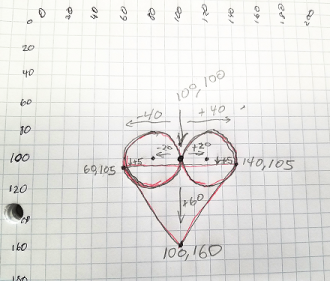 0 20 40 60 80 100 120 140 160 180 200
20
40
60
80
100
120
160
100,100
-40 +40
-20 +20
↓+5 ↓+5
60,105 140,105
+60
100,160